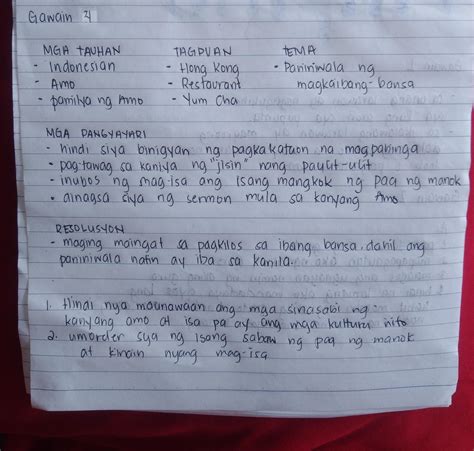 Gawain 4
MGA TAUHAN TAGPUAN TEMA
- Indonesian - Hong Kong - Paniniwala ng
- Amo - Restaurant magkaibang-bansa
- pamilya ng Amo - Yum Cha
MGA PANGYAYARI
- hindi siya binigyan ng pagkakataon na magpahinga
- pag-tawag sa kaniya ng "jisin" nang paulit-ulit
- inubos ng mag-isa ang isang mangkok ng paa ng manok
- dinagsa siya ng sermon mula sa kanyang Amo
RESOLUSYON
- maging maingat sa pagkilos sa ibang bansa dahil ang
paniniwala natin ay iba sa kanila.
1. Hindi nya maunawaan ang mga sinasabi ng
kanyang amo at isa pa ay ang mga kultura nito
2. umorder sya ng isang sabaw ng paa ng manok
at kinain nyang mag-isa